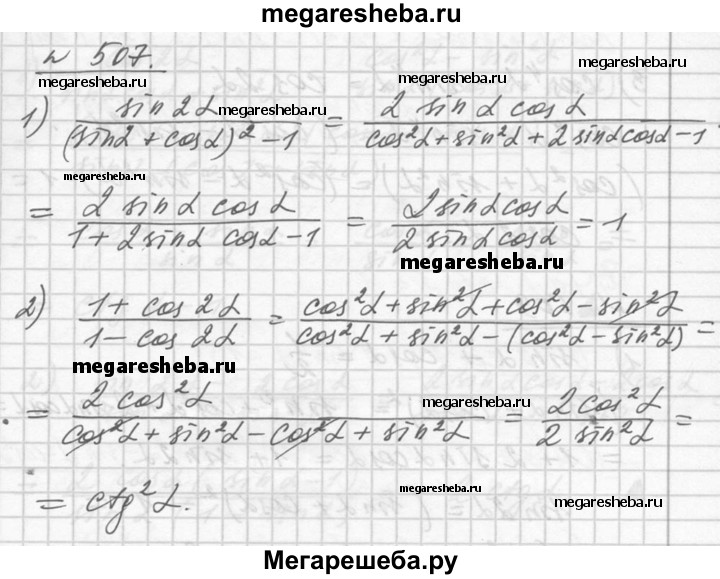 megaresheba.ru
№ 507.
megaresheba.ru megaresheba.ru megaresheba.ru
1) sin 2α / (sin α + cos α)² − 1 = 2 sin α cos α / cos²α + sin²α + 2 sin α cos α − 1
megaresheba.ru
megaresheba.ru
= 2 sin α cos α / 1 + 2 sin α cos α − 1 = 2 sin α cos α / 2 sin α cos α = 1
megaresheba.ru
2) 1 + cos 2α / 1 − cos 2α = cos²α + sin²α + cos²α − sin²α / cos²α + sin²α − (cos²α − sin²α) =
megaresheba.ru
= 2 cos²α / cos²α + sin²α − cos²α + sin²α = 2 cos²α / 2 sin²α =
megaresheba.ru
= ctg²α.
megaresheba.ru
megaresheba.ru
Мегарешеба.ру